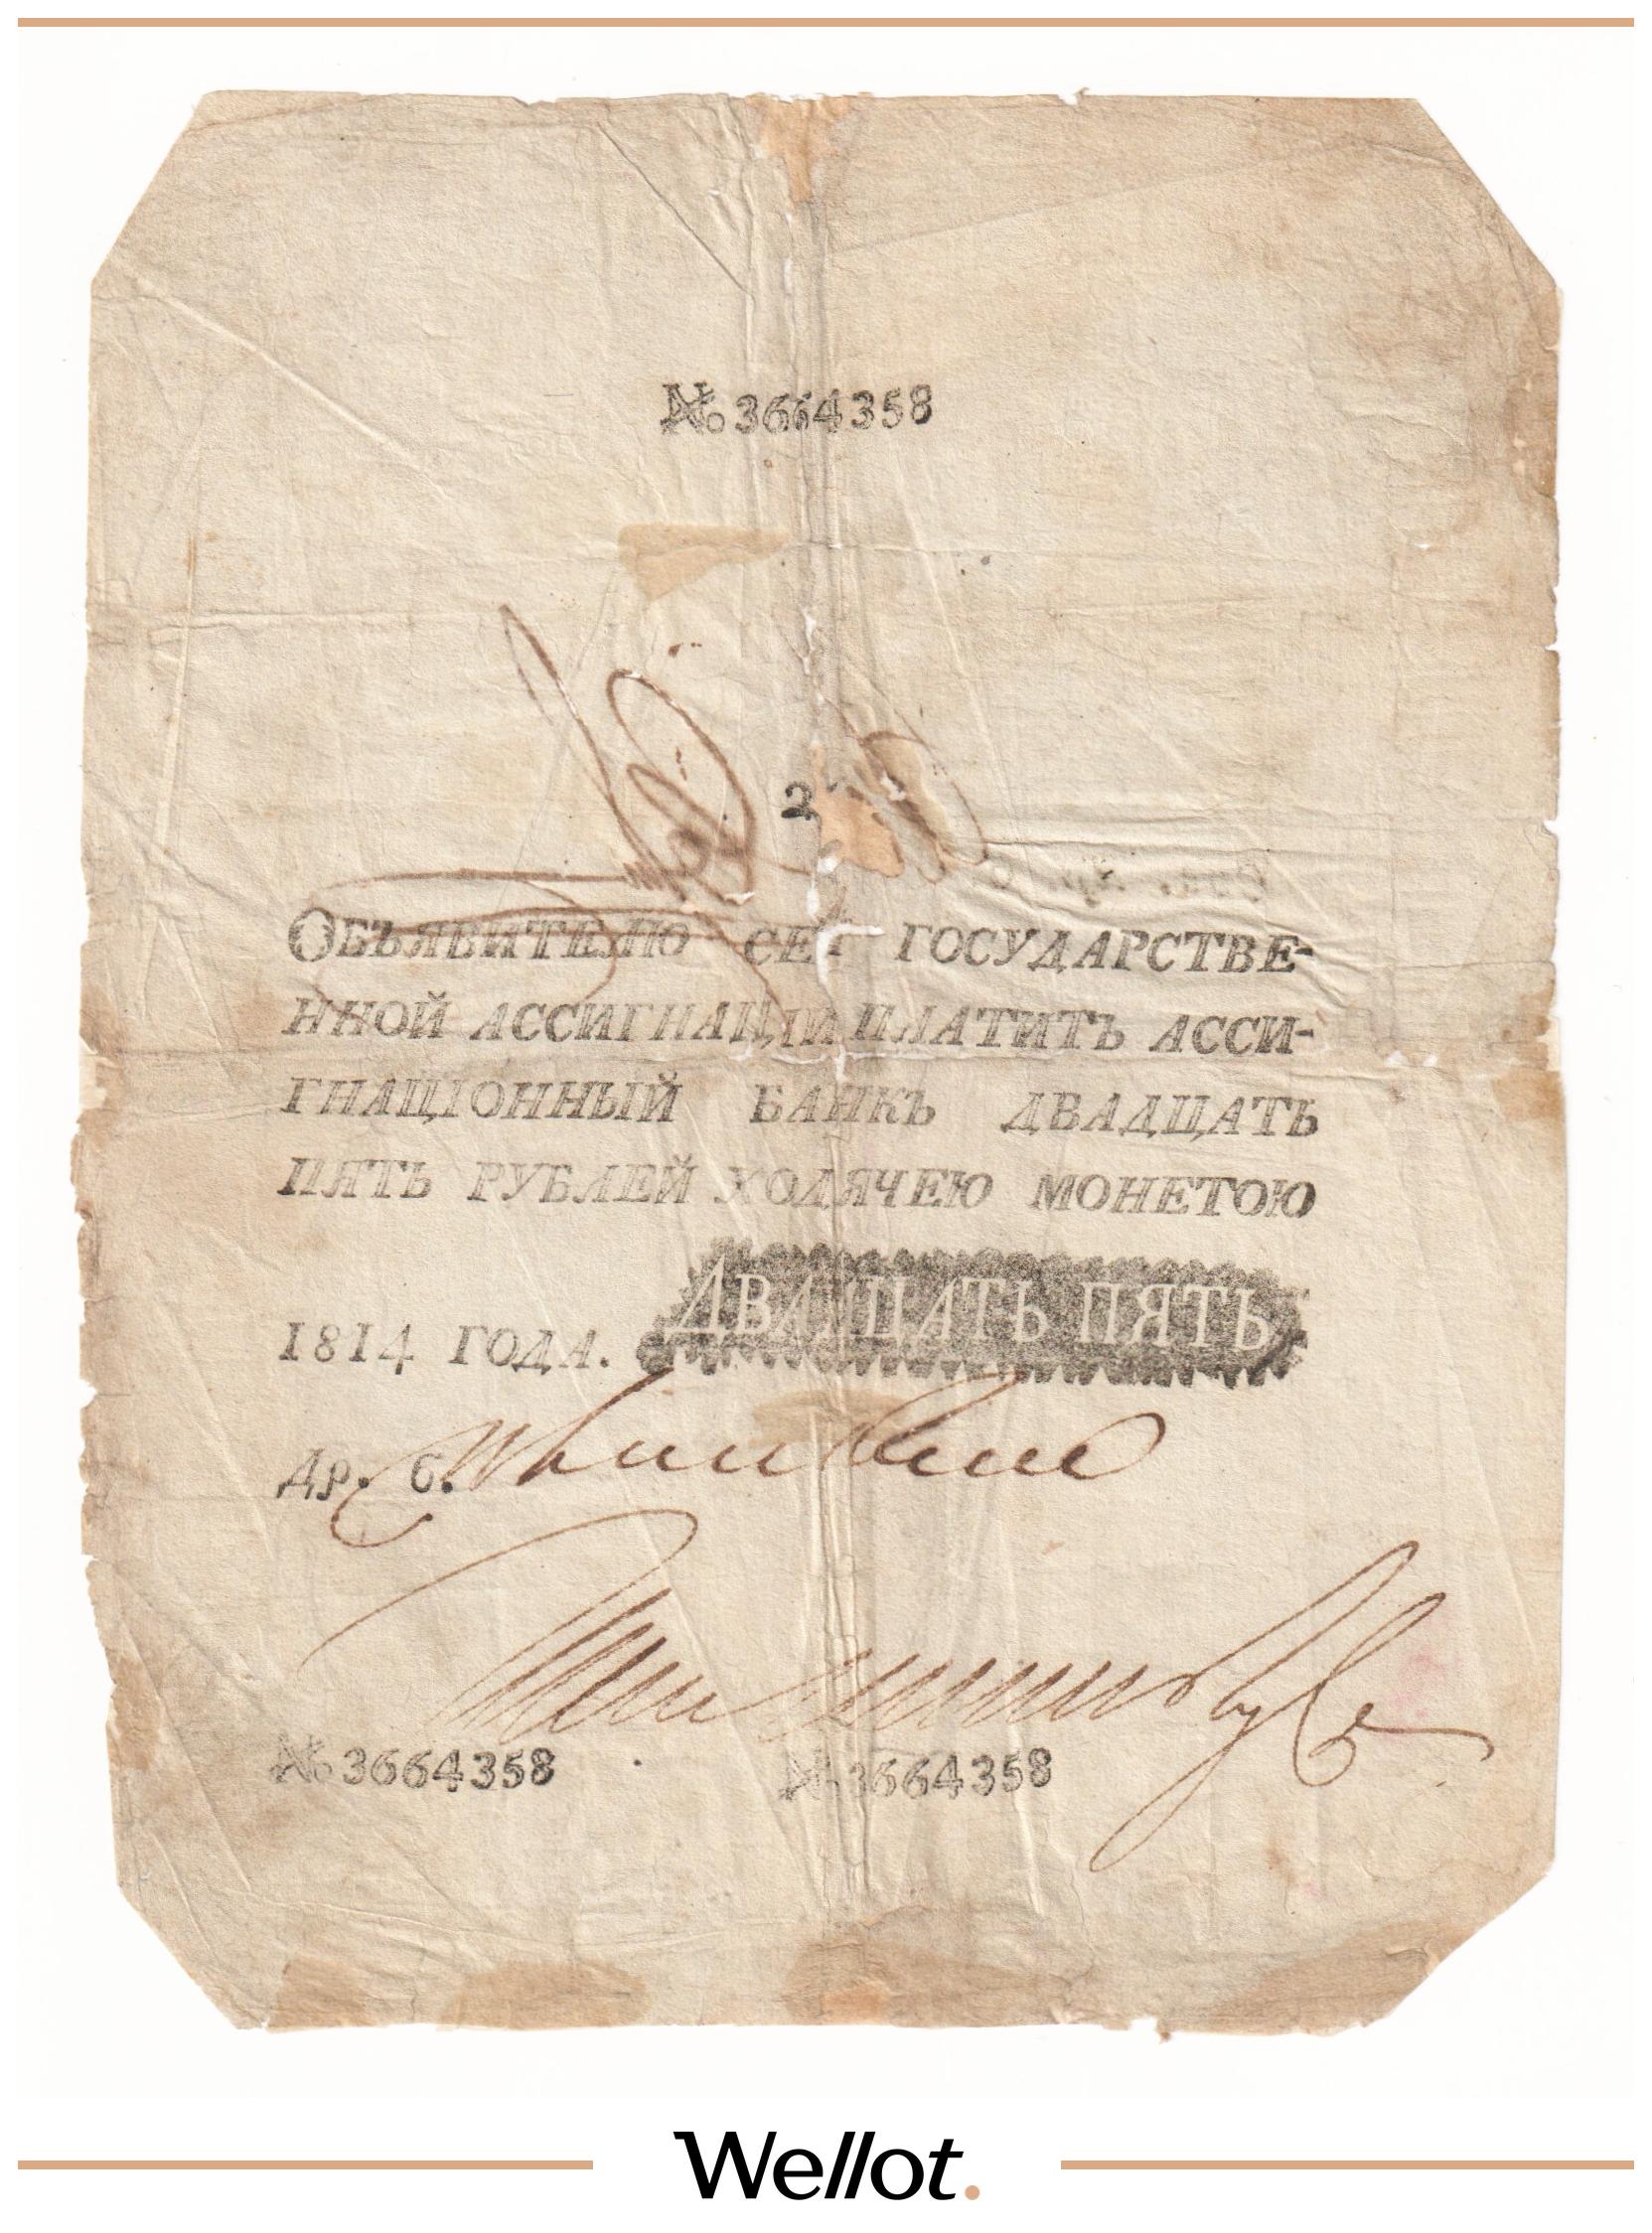 № 3664358
2
Объявителю сей государстве-
нной ассигнаціи платитъ асси-
гнаціонный банкъ двадцать
пять рублей ходячею монетою
1814 года. ДВАДЦАТЬ ПЯТЬ
Др. 6.
№ 3664358 № 3664358
Wellot.